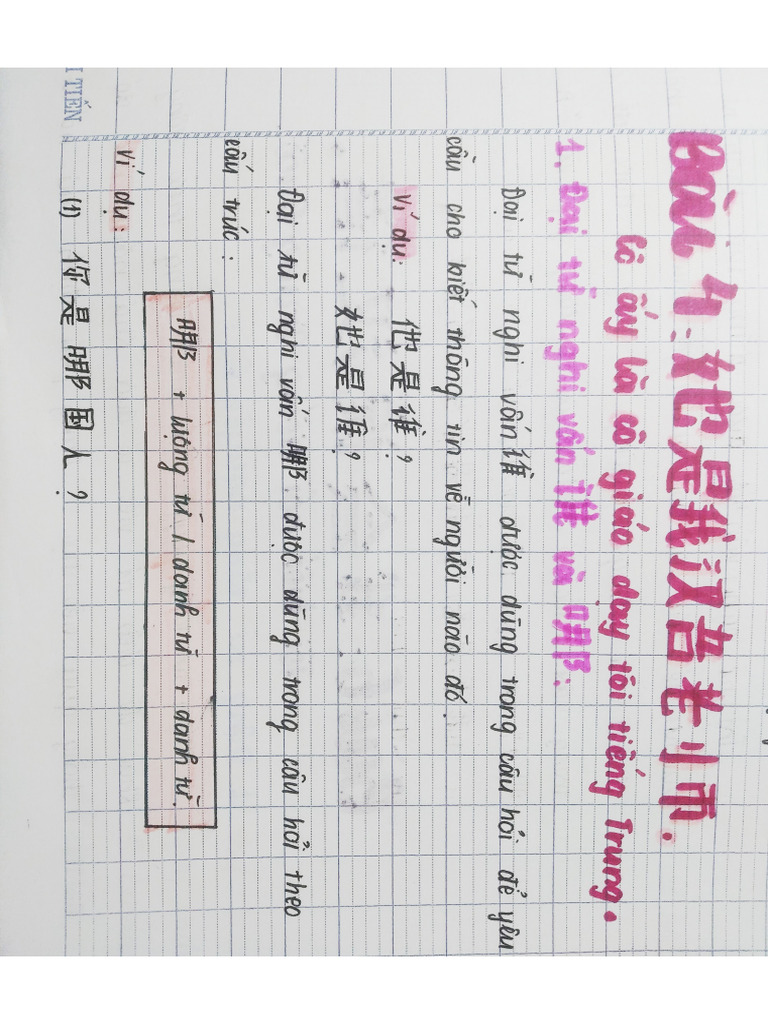 Bài 4: 她是我汉语老师.
Cô ấy là cô giáo dạy tôi tiếng Trung.
1. Đại từ nghi vấn 谁 và 哪:
Đại từ nghi vấn 谁 được dùng trong câu hỏi để yêu
cầu cho biết thông tin về người nào đó.
Ví dụ: 他是谁?
她是谁?
Đại từ nghi vấn 哪 được dùng trong câu hỏi theo
cấu trúc:
哪 + lượng từ / danh từ + danh từ.
Ví dụ:
(1) 你是哪国人?
TIÊN